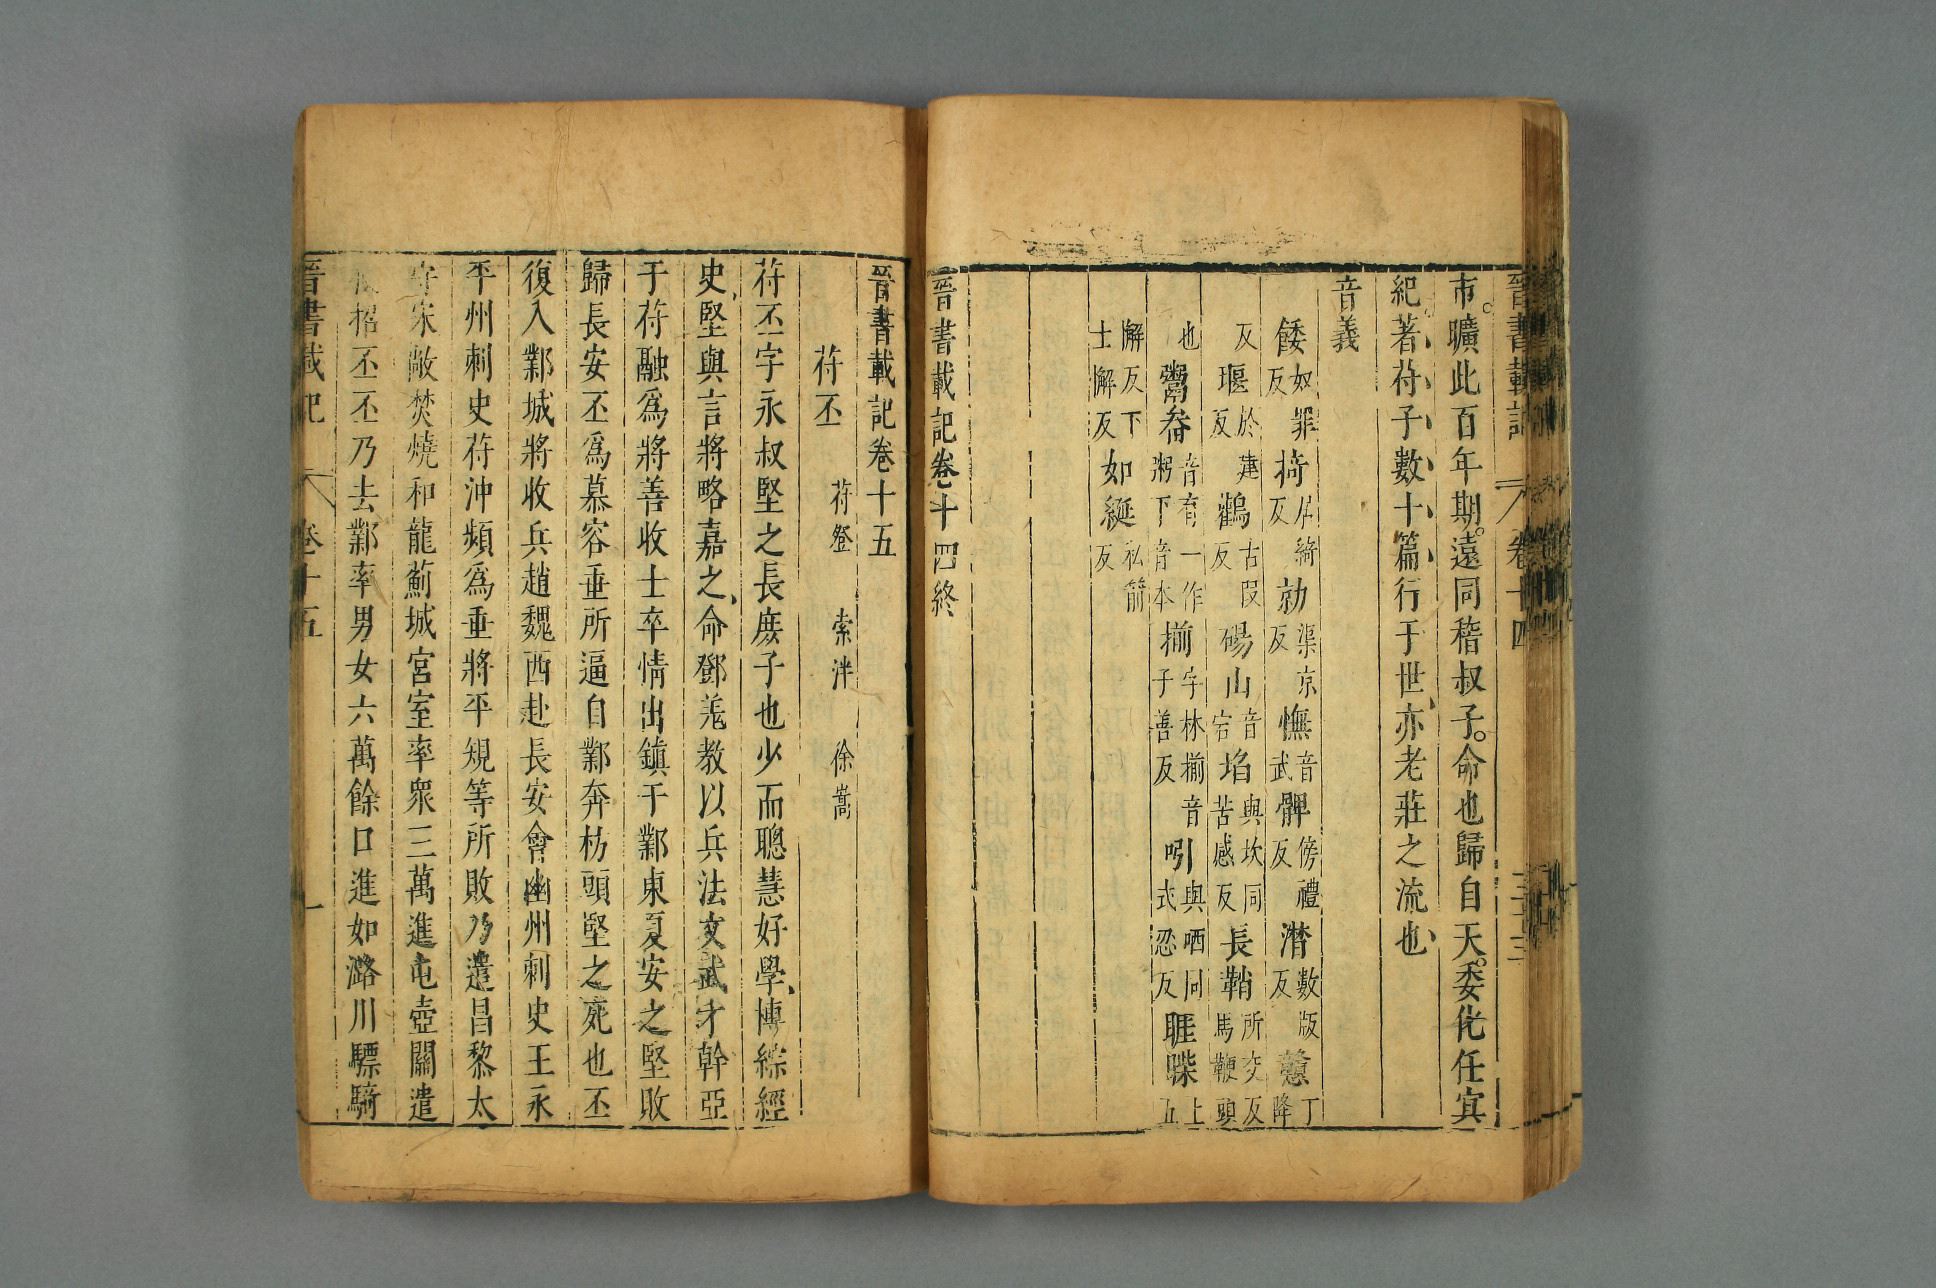 晉書載記 卷十四 三十三
市曠此百年期遠同稽叔子命也歸自天委化任宜
紀著苻子數十篇行于世亦老莊之流也
音義
餧奴罪反 掎居綺反 勍渠京反 憮音武 髀傍禮反 潸數版反 戇丁降
反 堰於建反 鸛古段反 碭山音宕 埳與坎同苦感反 長鞘所交反馬鞭頭
也 鬻眷音育一作粥下音本 揃字林揃音子善反 吲與哂同式忍反 睚䁟上五
懈反下士懈反 如綖私箭反
晉書載記卷十四終
晉書載記卷十五
苻丕 苻登 索泮 徐嵩
苻丕字永叔堅之長庶子也少而聰慧好學博綜經
史堅與言將略嘉之命鄧羌教以兵法文武才幹亞
于苻融爲將善收士卒情出鎮于鄴東夏安之堅敗
歸長安丕爲慕容垂所逼自鄴奔枋頭堅之死也丕
復入鄴城將收兵趙魏西赴長安會幽州刺史王永
平州刺史苻沖頻爲垂將平規等所敗乃遣昌黎太
守宋敞焚燒和龍薊城宮室率衆三萬進屯壺關遣
招丕丕乃去鄴率男女六萬餘口進如潞川驃騎
晉書載記 卷十五 一